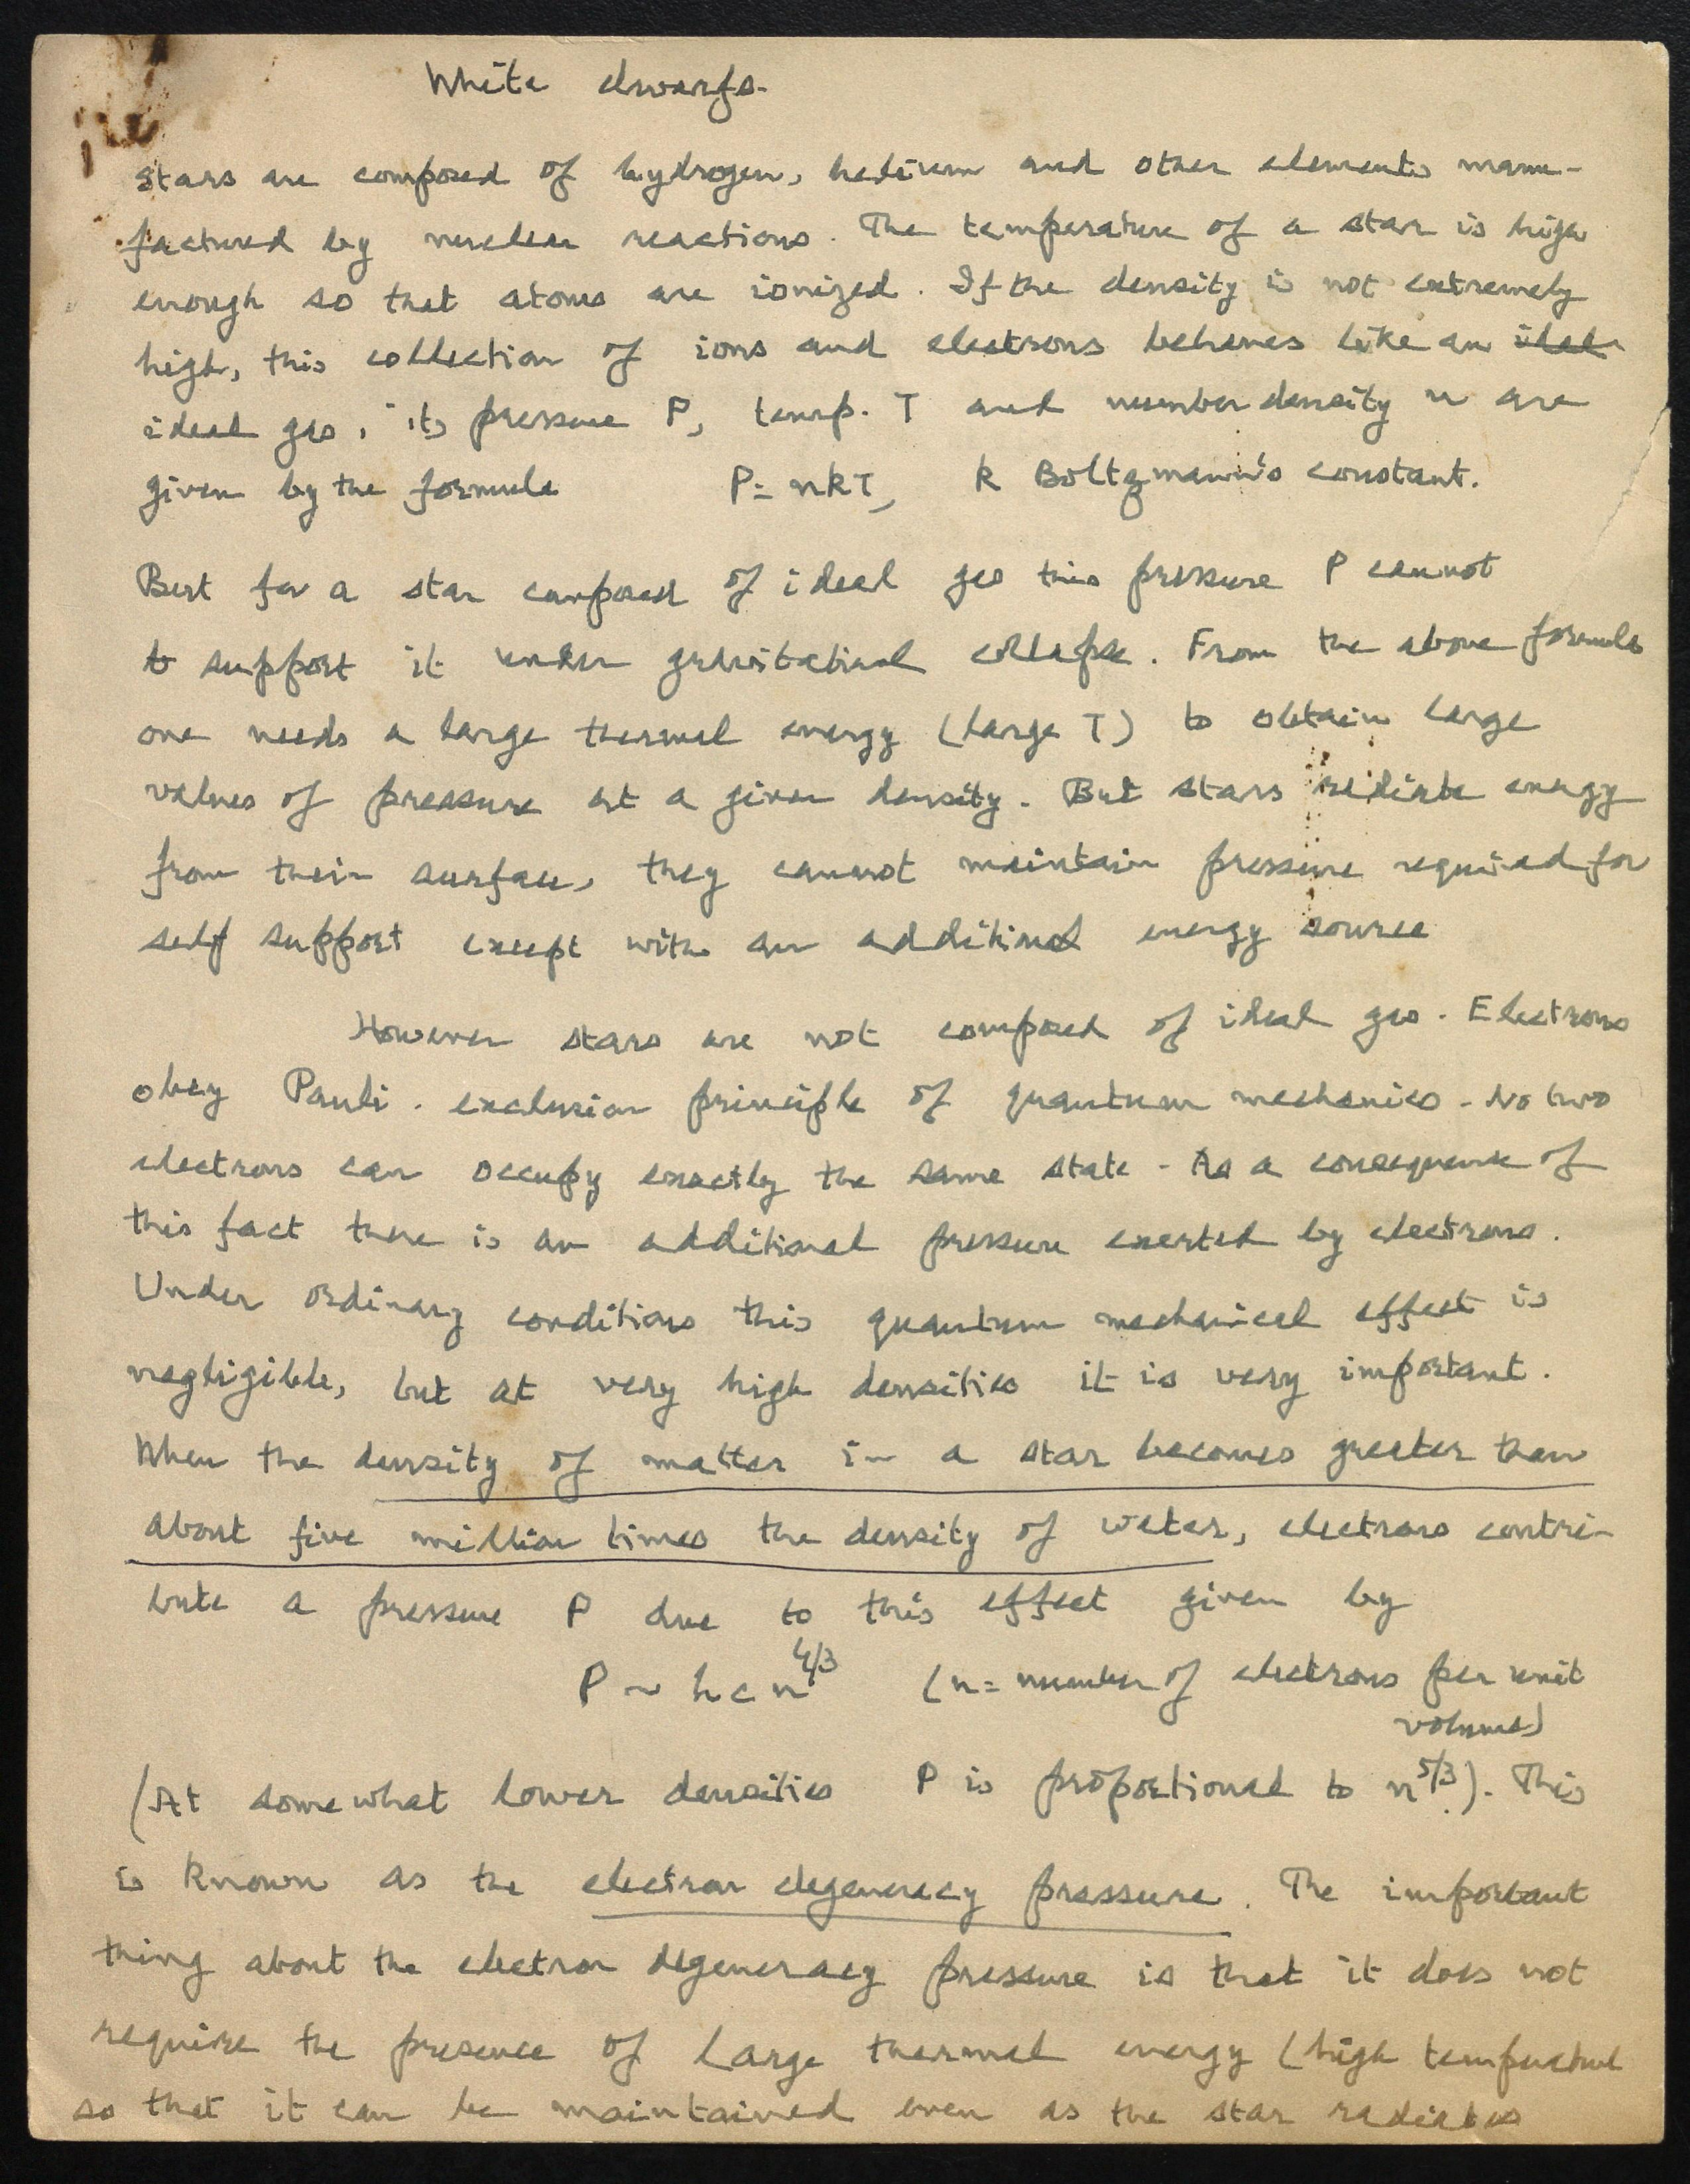 White dwarfs.
Stars are composed of hydrogen, helium and other elements manu-
factured by nuclear reactions. The temperature of a star is high
enough so that atoms are ionized. If the density is not extremely
high, this collection of ions and electrons behaves like an ideal
ideal gas, its pressure P, temp. T and number density n are
given by the formula P = nkT, k Boltzmann's constant.
But for a star composed of ideal gas this pressure P cannot
to support it under gravitational collapse. From the above formula
one needs a large thermal energy (large T) to obtain large
values of pressure at a given density. But stars radiate energy
from their surface, they cannot maintain pressure required for
self support except with an additional energy source
However stars are not composed of ideal gas. Electrons
obey Pauli. exclusion principle of quantum mechanics - No two
electrons can occupy exactly the same state - As a consequence of
this fact there is an additional pressure exerted by electrons.
Under ordinary conditions this quantum mechanical effect is
negligible, but at very high densities it is very important.
When the density of matter in a star becomes greater than
about five million times the density of water, electrons contri-
bute a pressure P due to this effect given by
P ~ hcn^4/3 (n = number of electrons per unit
volume)
(At somewhat lower densities P is proportional to n^5/3). This
is known as the electron degeneracy pressure. The important
thing about the electron degeneracy pressure is that it does not
require the presence of large thermal energy (high temperature
so that it can be maintained even as the star radiates